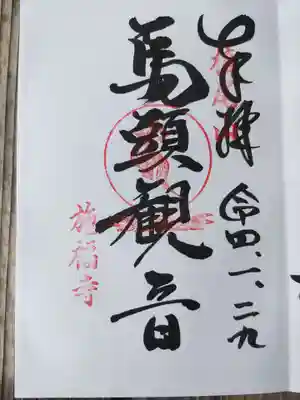 奉拝 令四、一、二九
馬頭観音
施福寺